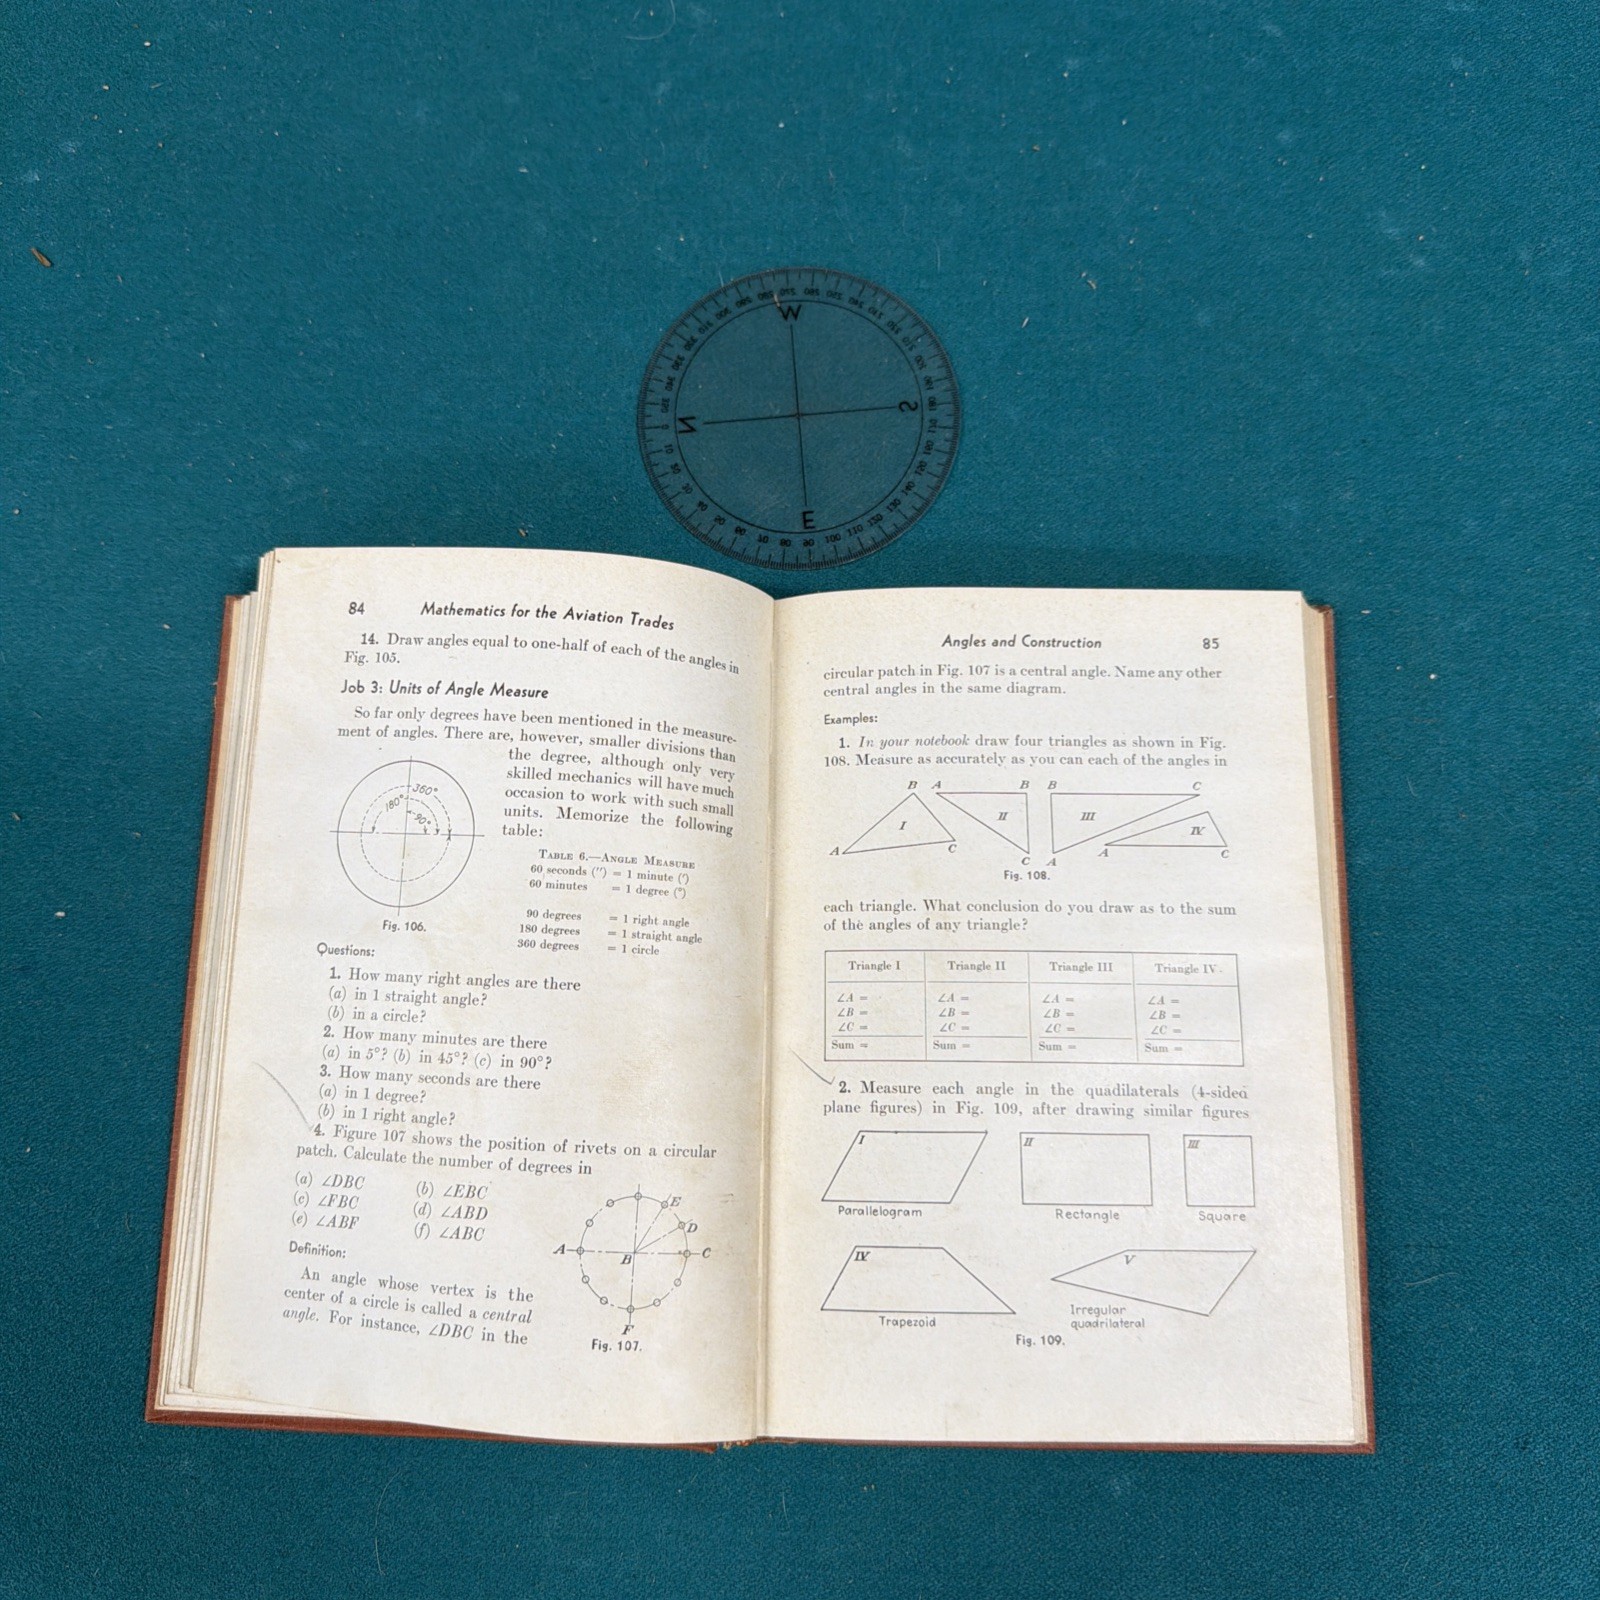 W
N
S
E
84 Mathematics for the Aviation Trades
14. Draw angles equal to one-half of each of the angles in
Fig. 105.
Job 3: Units of Angle Measure
So far only degrees have been mentioned in the measure-
ment of angles. There are, however, smaller divisions than
the degree, although only very
skilled mechanics will have much
occasion to work with such small
units. Memorize the following
table:
360°
180°
90°
Fig. 106.
TABLE 6.—ANGLE MEASURE
60 seconds (″) = 1 minute (′)
60 minutes = 1 degree (°)
90 degrees = 1 right angle
180 degrees = 1 straight angle
360 degrees = 1 circle
Questions:
1. How many right angles are there
(a) in 1 straight angle?
(b) in a circle?
2. How many minutes are there
(a) in 5°? (b) in 45°? (c) in 90°?
3. How many seconds are there
(a) in 1 degree?
(b) in 1 right angle?
4. Figure 107 shows the position of rivets on a circular
patch. Calculate the number of degrees in
(a) ∠DBC (b) ∠EBC
(c) ∠FBC (d) ∠ABD
(e) ∠ABF (f) ∠ABC
Definition:
An angle whose vertex is the
center of a circle is called a central
angle. For instance, ∠DBC in the
E
D
A B C
F
Fig. 107.
Angles and Construction 85
circular patch in Fig. 107 is a central angle. Name any other
central angles in the same diagram.
Examples:
1. In your notebook draw four triangles as shown in Fig.
108. Measure as accurately as you can each of the angles in
B A B B C
I II III IV
A C C A A C
Fig. 108.
each triangle. What conclusion do you draw as to the sum
of the angles of any triangle?
Triangle I Triangle II Triangle III Triangle IV.
∠A = ∠A = ∠A = ∠A =
∠B = ∠B = ∠B = ∠B =
∠C = ∠C = ∠C = ∠C =
Sum = Sum = Sum = Sum =
2. Measure each angle in the quadrilaterals (4-sided
plane figures) in Fig. 109, after drawing similar figures
I II III
Parallelogram Rectangle Square
IV V
Trapezoid Irregular
quadrilateral
Fig. 109.